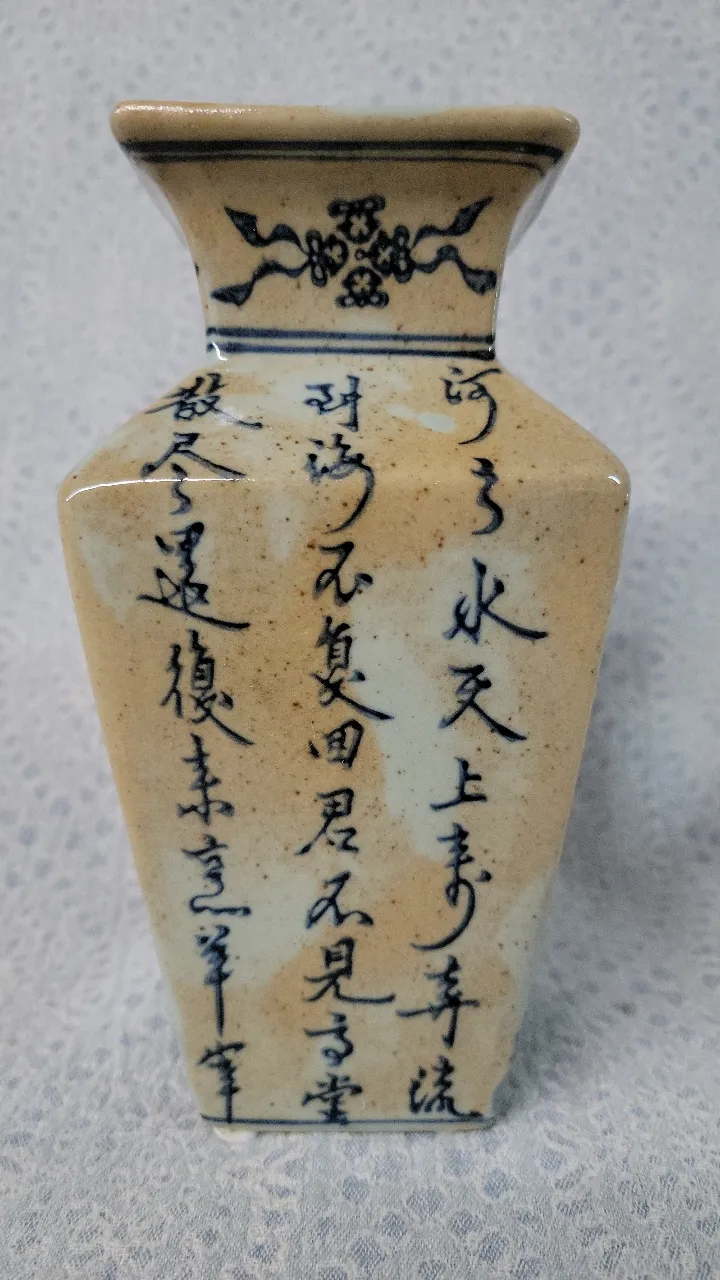 河之水天上寿奔流
到海不复回君不見高堂
散尽還復来烹羊宰